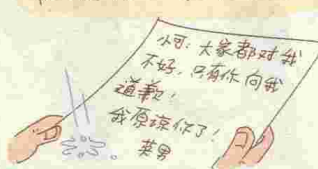 小可：大家都对我
不好，只有你向我
道歉！
我原谅你了！
英男